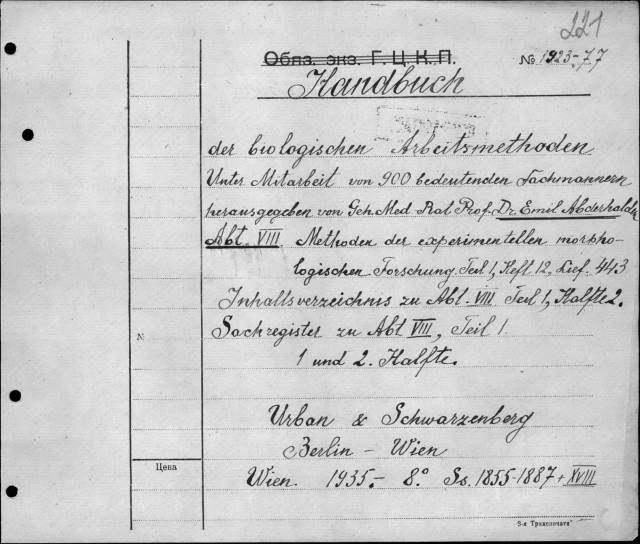 221
Обяз. экз. Г.Ц.К.П.
№ 1923-77
Handbuch
der biologischen Arbeitsmethoden
Unter Mitarbeit von 900 bedeutenden Fachmannern
herausgegeben von Geh. Med. Rat Prof. Dr. Emil Abderhalden
Abt. VIII. Methoden der experimentellen morpho-
logischen Forschung Teil 1, Heft 12, Lief. 443
Inhaltsverzeichnis zu Abt. VIII Teil 1, Halfte 2.
Sachregister zu Abt VIII, Teil 1.
1 und 2. Halfte.
N
Urban & Schwarzenberg
Berlin - Wien
Цена
Wien. 1935.- 8° Ss. 1855-1887 + XVIII
3-я Транспечать